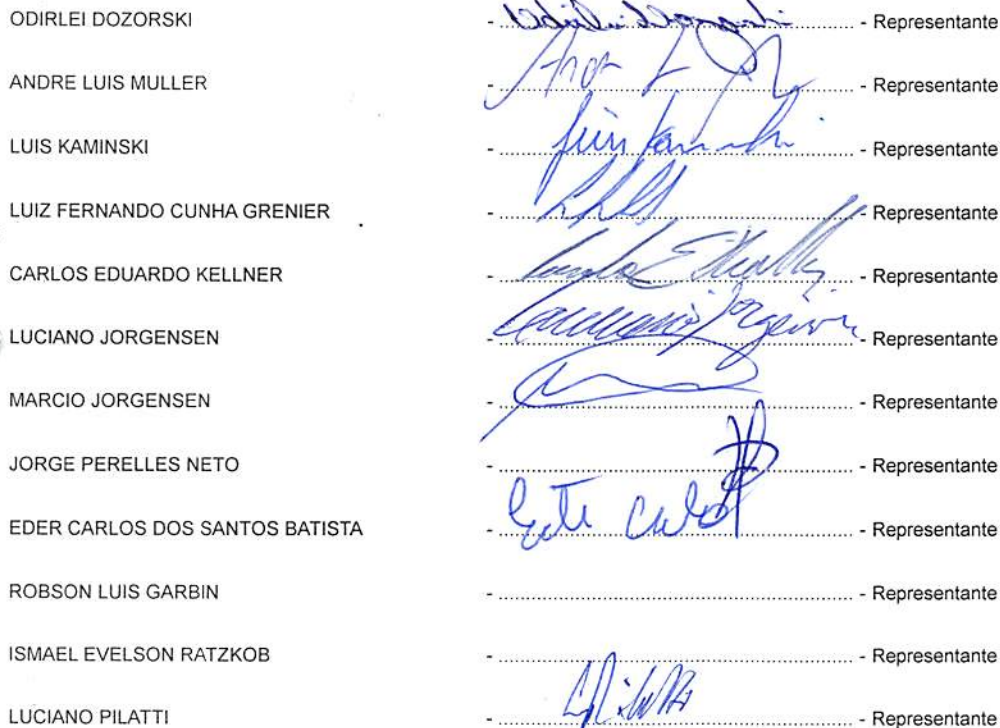 ODIRLEI DOZORSKI - ........................ - Representante
ANDRE LUIS MULLER - ........................ - Representante
LUIS KAMINSKI - Luis Kaminski - Representante
LUIZ FERNANDO CUNHA GRENIER - ........................ - Representante
CARLOS EDUARDO KELLNER - ........................ - Representante
LUCIANO JORGENSEN - ........................ - Representante
MARCIO JORGENSEN - ........................ - Representante
JORGE PERELLES NETO - ........................ - Representante
EDER CARLOS DOS SANTOS BATISTA - ........................ - Representante
ROBSON LUIS GARBIN - ........................ - Representante
ISMAEL EVELSON RATZKOB - ........................ - Representante
LUCIANO PILATTI - ........................ - Representante